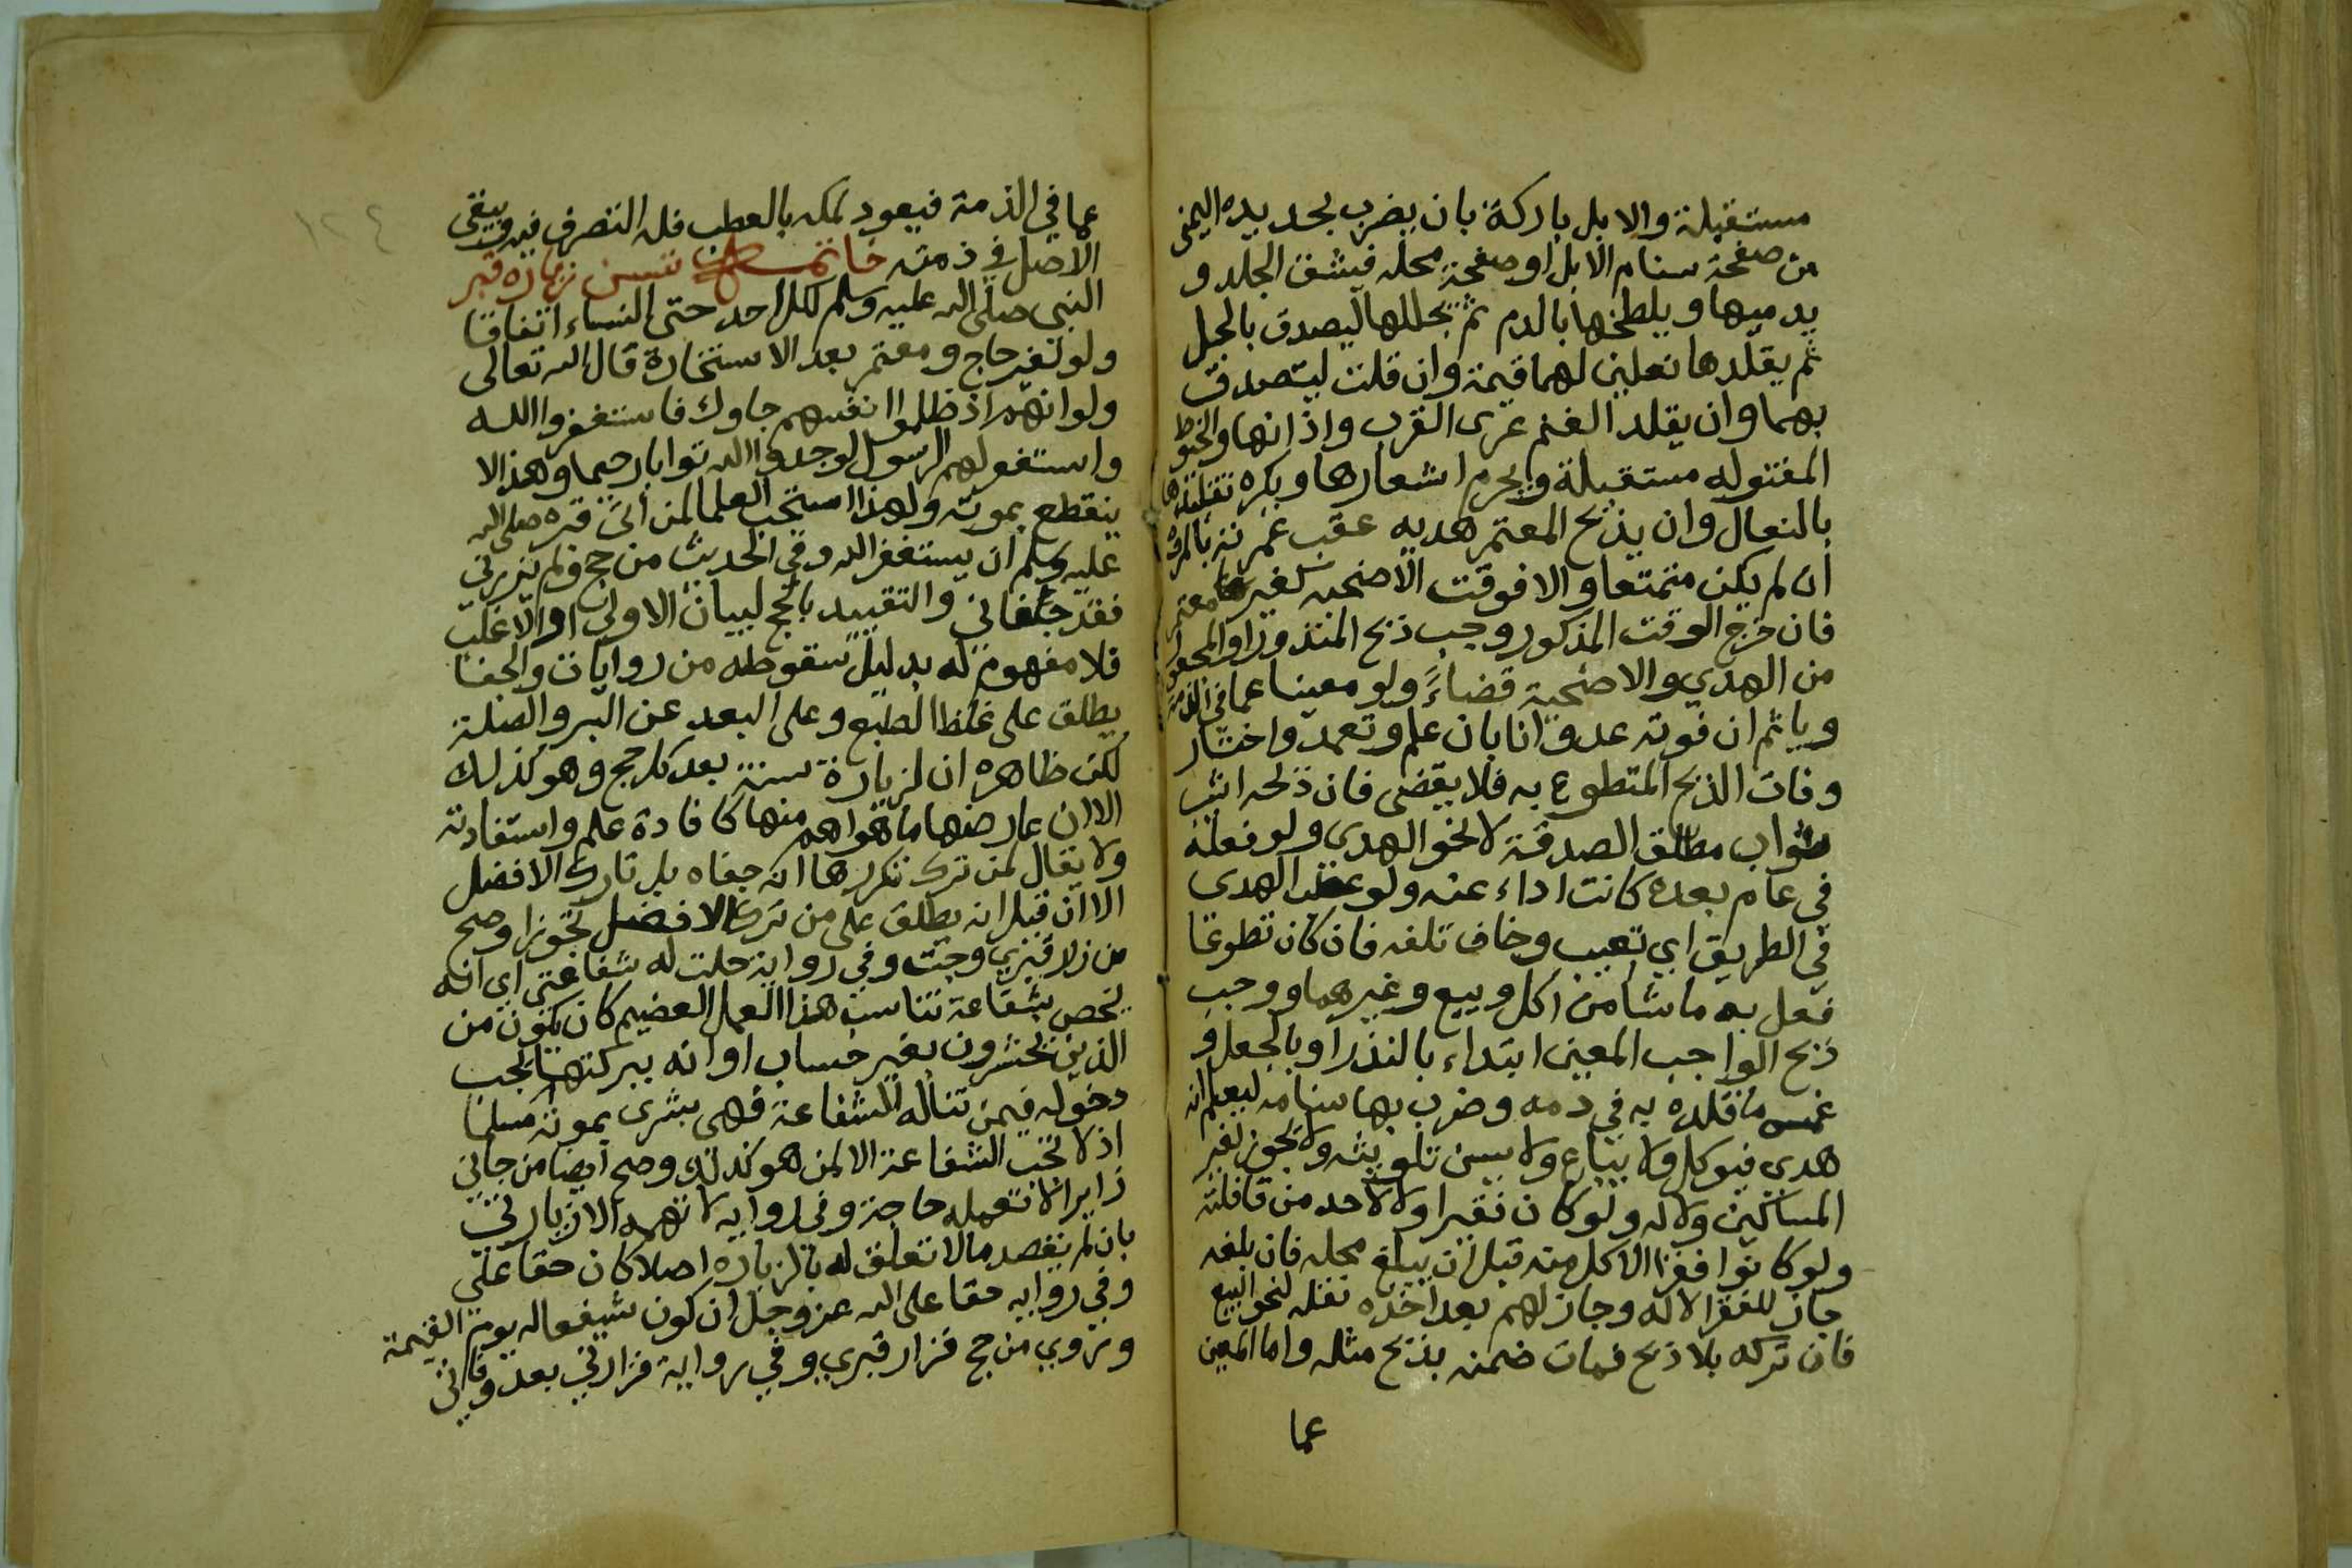 مستقبلة والابل باركة بان يضرب بحديده اليمنى
من صفحة سنام الابل او صفحة محله فيشق الجلد و
يدميها ويلطخها بالدم ثم يجللها ليصدق بالجل
ثم يقلدها نعلين لهما قيمة وان قلت ليتصدق
بهما وان يقلد الغنم عرى القرب واذانها والخيوط
المفتوله مستقبلة ويحرم اشعارها ويكره تقليدها
بالنعال وان يذبح المعتمر هديه عقب عمرته بالمروة
ان لم يكن متمتعا والا فوقت الاضحيه لغير معتمر
فان خرج الوقت المذكور وجب ذبح المنذور او المجعول
من الهدي والاضحية قضاءً ولو معينا عما في الذمة
وياثم ان فوته عدوانا بان علم وتعمد واختار
وفات الذبح المتطوع به فلا يقضى فان ذبحه اثيب
ثواب مطلق الصدقة لا نحو الهدي ولو فعله
في عام بعده كانت اداء عنه ولو عطب الهدى
في الطريق اي تعيب وخاف تلفه فان كان تطوعا
فعل به ما شا من اكل وبيع وغيرهما ووجب
ذبح الواجب المعين ابتداء بالنذر او بالجعل و
غمس ما قلده به في دمه وضرب بها سنامه ليعلم انه
هدي فيوكل ولا يباع ولا يسن تلويثه ولا يجوز لغير
المساكين ولا له ولو كان فقيرا ولا لاحد من قافلته
ولو كانوا فقرا الاكل منه قبل ان يبلغ محله فان بلغه
جاز للفقرا لا له وجاز لهم بعد اخذه نقله لنحو البيع
فان تركه بلا ذبح فمات ضمنه بذبح مثله واما المعين
عما
عما في الذمة فيعود لملكه بالعطب فله التصرف فيه ويبقى
الاصل في ذمته خاتمة تسن زيارة قبر
النبي صلى الله عليه وسلم لكل احد حتى النساء اتفاقا
ولو لغير حاج ومعتمر بعد الاستخارة قال الله تعالى
ولو انهم اذ ظلموا انفسهم جاوك فاستغفروا الله
واستغفر لهم الرسول لوجدوا الله توابا رحيما وهذا لا
ينقطع بموته ولهذا استحب العلما لمن اتى قبره صلى الله
عليه وسلم ان يستغفر الله وفي الحديث من حج ولم يزرني
فقد جفاني والتقييد بالحج لبيان الاولى او الاغلب
فلا مفهوم له بدليل سقوطه من روايات والجفا
يطلق على غلظ الطبع وعلى البعد عن البر والصلة
لكن ظاهره ان لزيارة سنة بعد كل حج وهو كذلك
الا ان عارضها ما هو اهم منها كافادة علم واستفادته
ولا يقال لمن ترك تكررها انه جفاه بل تارك الافضل
الا ان قيل انه يطلق على من ترك الافضل تجوزا وصح
من زار قبري وجبت وفي رواية حلت له شفاعتي اي انه
يخص بشفاعة تناسب هذا العمل العضيم كان يكون من
الذين يحشرون بغير حساب او انه ببركتها يجب
دخوله فيمن تناله الشفاعة فهي بشرى بموته مسلما
اذ لا تجب الشفاعة الا لمن هو كذلك وصح ايضا من جاني
زايرا لا تعمله حاجة وفي روايه لا تهمه الا زيارتي
بان لم يقصد ما لا تعلق له بالزياره اصلا كان حقا علي
وفي روايه حقا على الله عز وجل ان كون شفيعا له يوم القيمة
وروي من حج فزار قبري وفي رواية فزارني بعد وفاتي
١٢٤